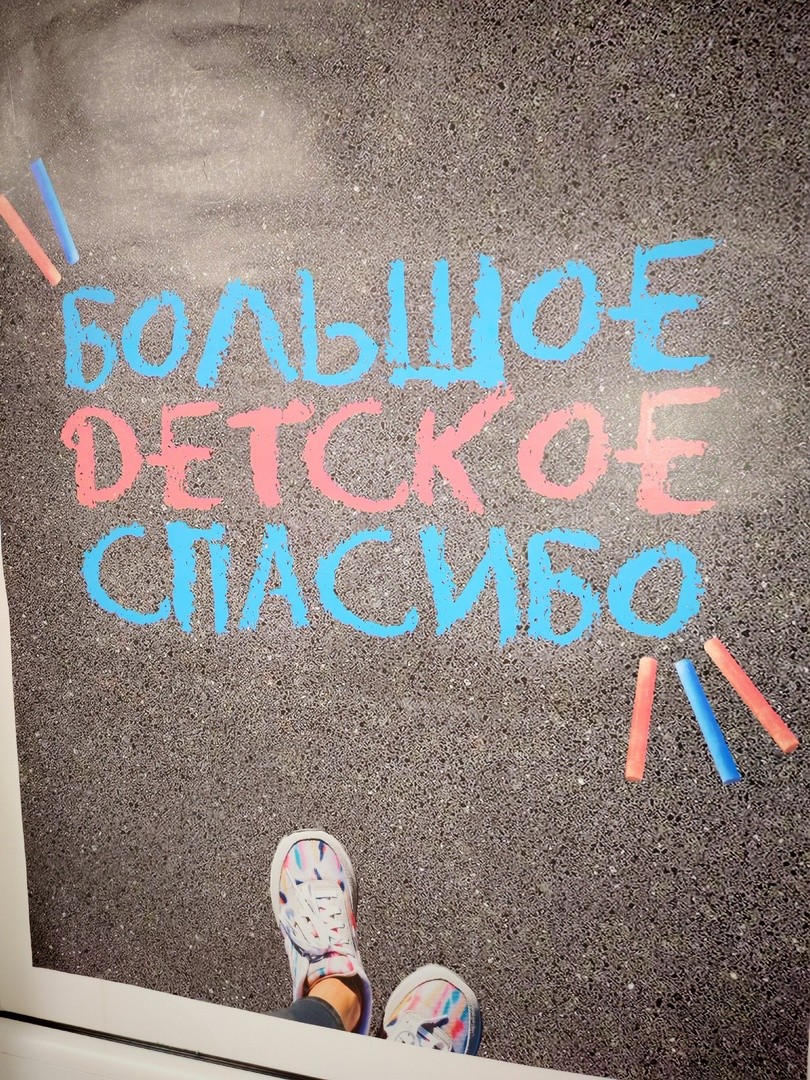 БОЛЬШОЕ
DЕТСКОЕ
СПАСИБО